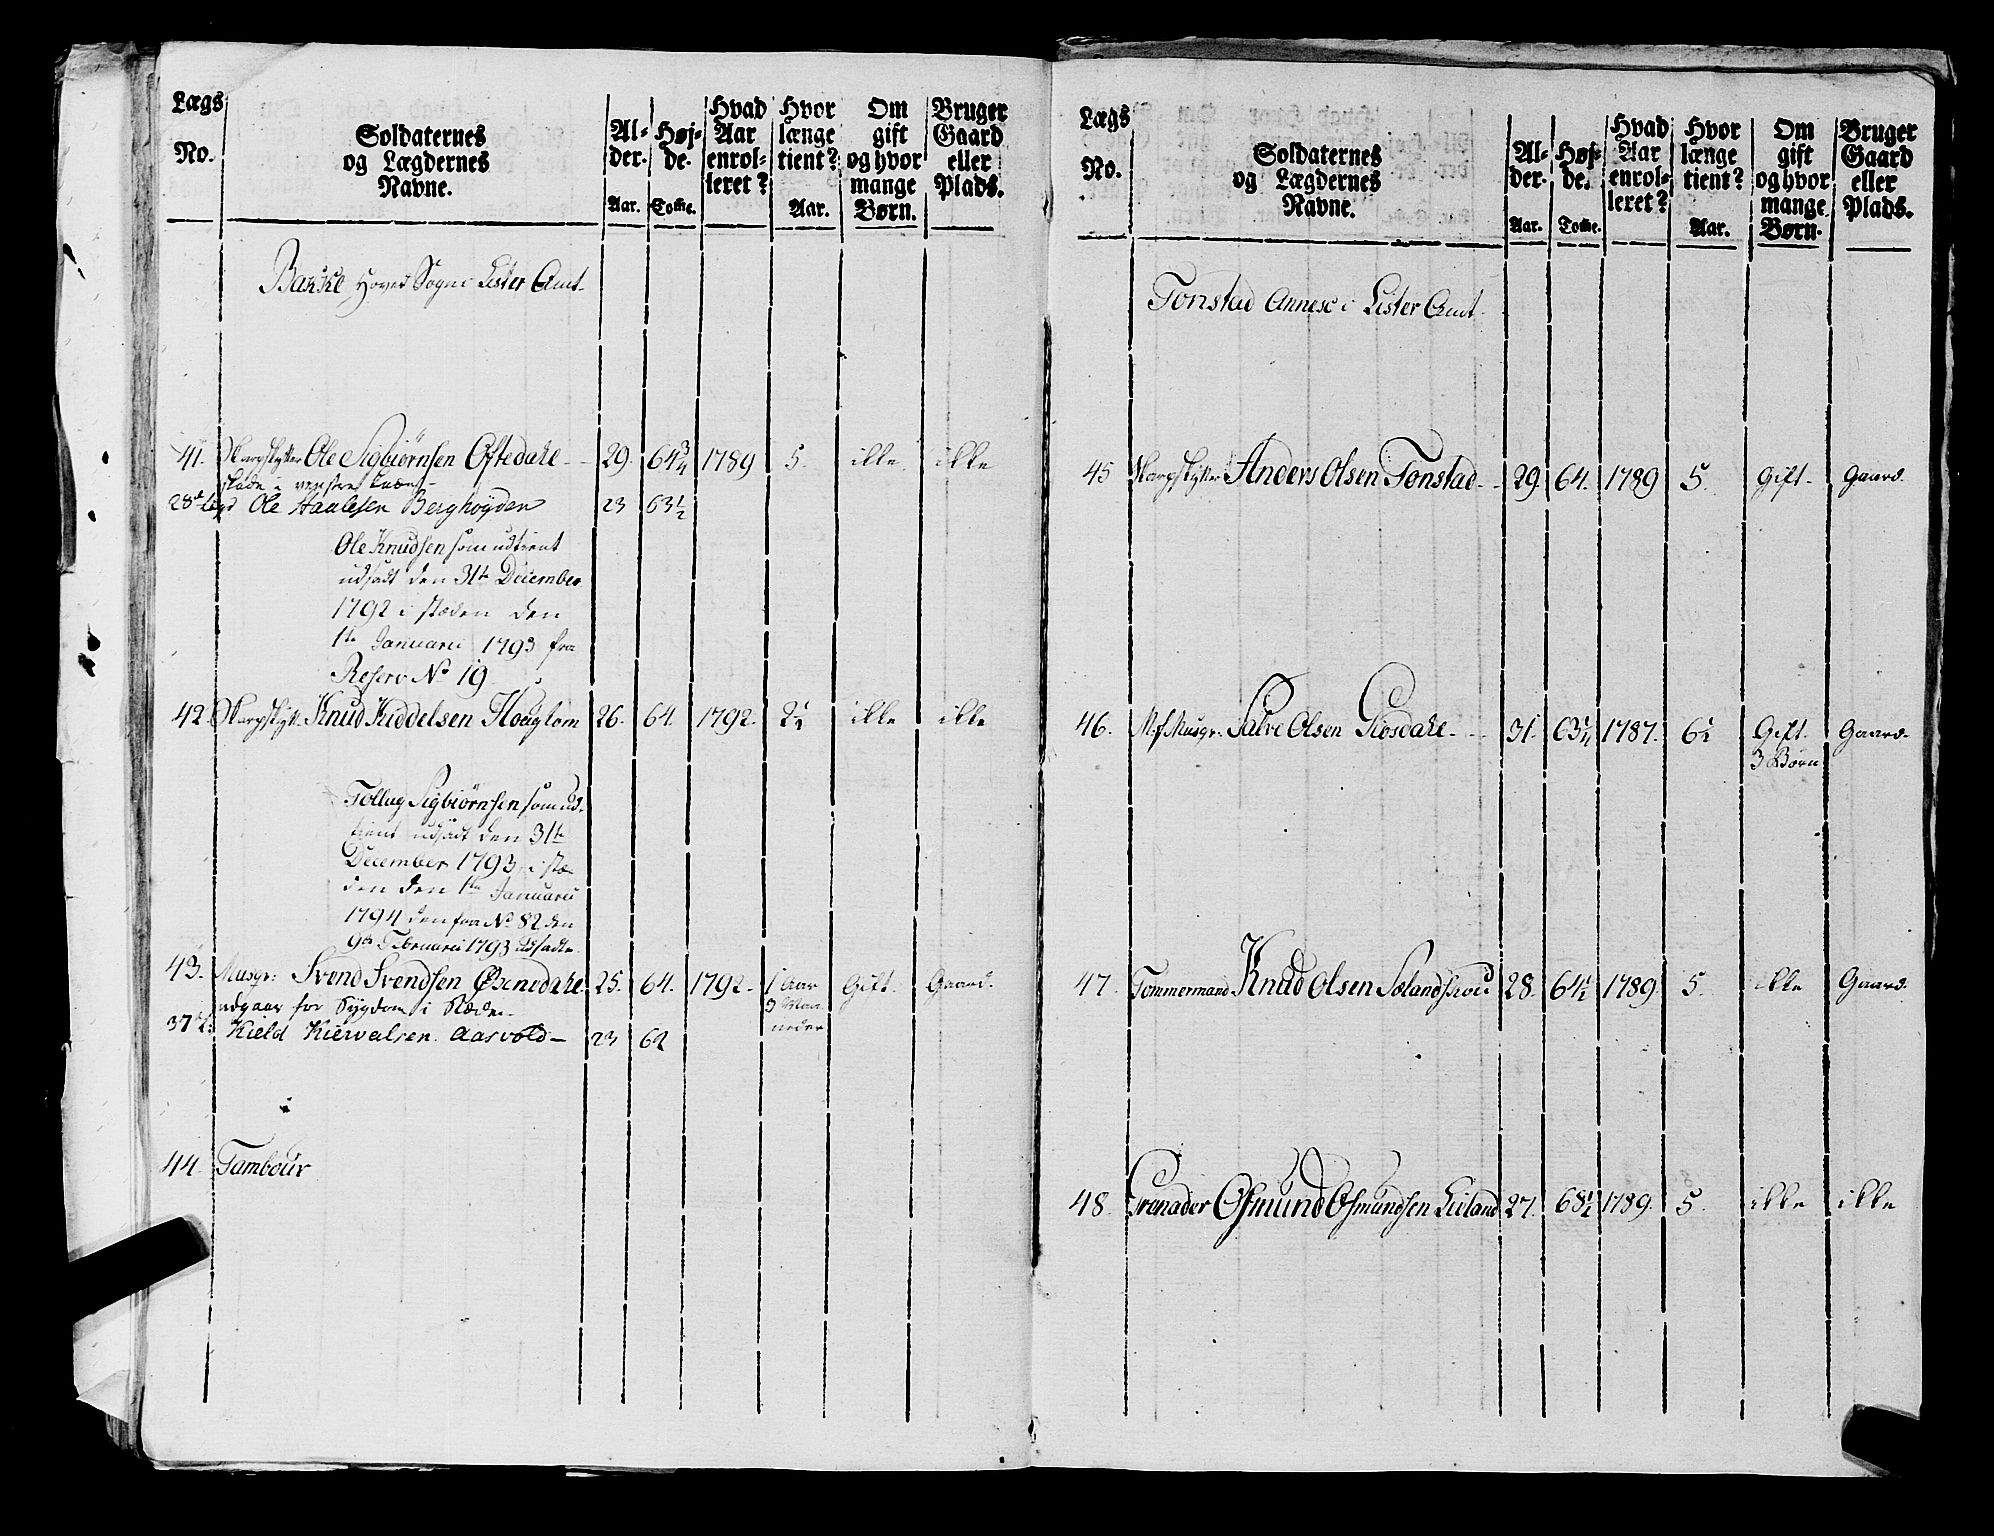 Lægs No. | Soldaternes og Lægdernes Navne. | Al-der. Aar. | Høj-de. Tome. | Hvad Aar enrol-leret? | Hvor længe tient? Aar. | Om gift og hvor mange Børn. | Bruger Gaard eller Plads.
Bakke Hoved Sogn i Lister Amt.
41. Skarpskytter Ole Sigbiørnsen Oftedahl 29. 64 3/4 1789 5. ikke ikke
skade i venstre
28de Legd Ole Staalesen Berghøyden 23 63 1/2
Ole Knudsen som udtient
udsadt den 31te December
1792 i stæden den
1te Januarii 1793 fra
Reserv No 19
42. Skarpskytt. Knud Kiddelsen Hougtom 26. 64. 1792. 2 1/2 ikke ikke
Tollag Sigbiørnsen som ud-
tient udsadt den 31te
December 1793, i stæ-
den den 1ten Januarii
1794 den fra No 82 den
9de Februarii 1793 udsadte
43. Musqr: Svend Svendsen Øxendahl 25. 64. 1792. 1 Aar Gift. Gaard.
udgaar for Sygdom i Stæden 3 Maa-
neder
37te L. Kield Kiervalsen Aasvold 23 62
44. Tambour
Lægs No. | Soldaternes og Lægdernes Navne. | Al-der. Aar. | Høj-de. Tome. | Hvad Aar enrol-leret? | Hvor længe tient? Aar. | Om gift og hvor mange Børn. | Bruger Gaard eller Plads.
Tonstad Annex i Lister Amt.
45 Skarpskytter Anders Olsen Tonstad 29 64. 1789 5. Gift. Gaard.
46. Musqr: Salve Olsen Giosdahl 31. 63 1/4 1787. 6 1/2 Gift. Gaard.
3 Børn
47. Tømmermand Knud Olsen Sælandskoud 28. 64 1/2 1789. 5. ikke Gaard.
48. Grenader Osmund Osmundsen Liland 27. 68 1/2 1789. 5. ikke ikke